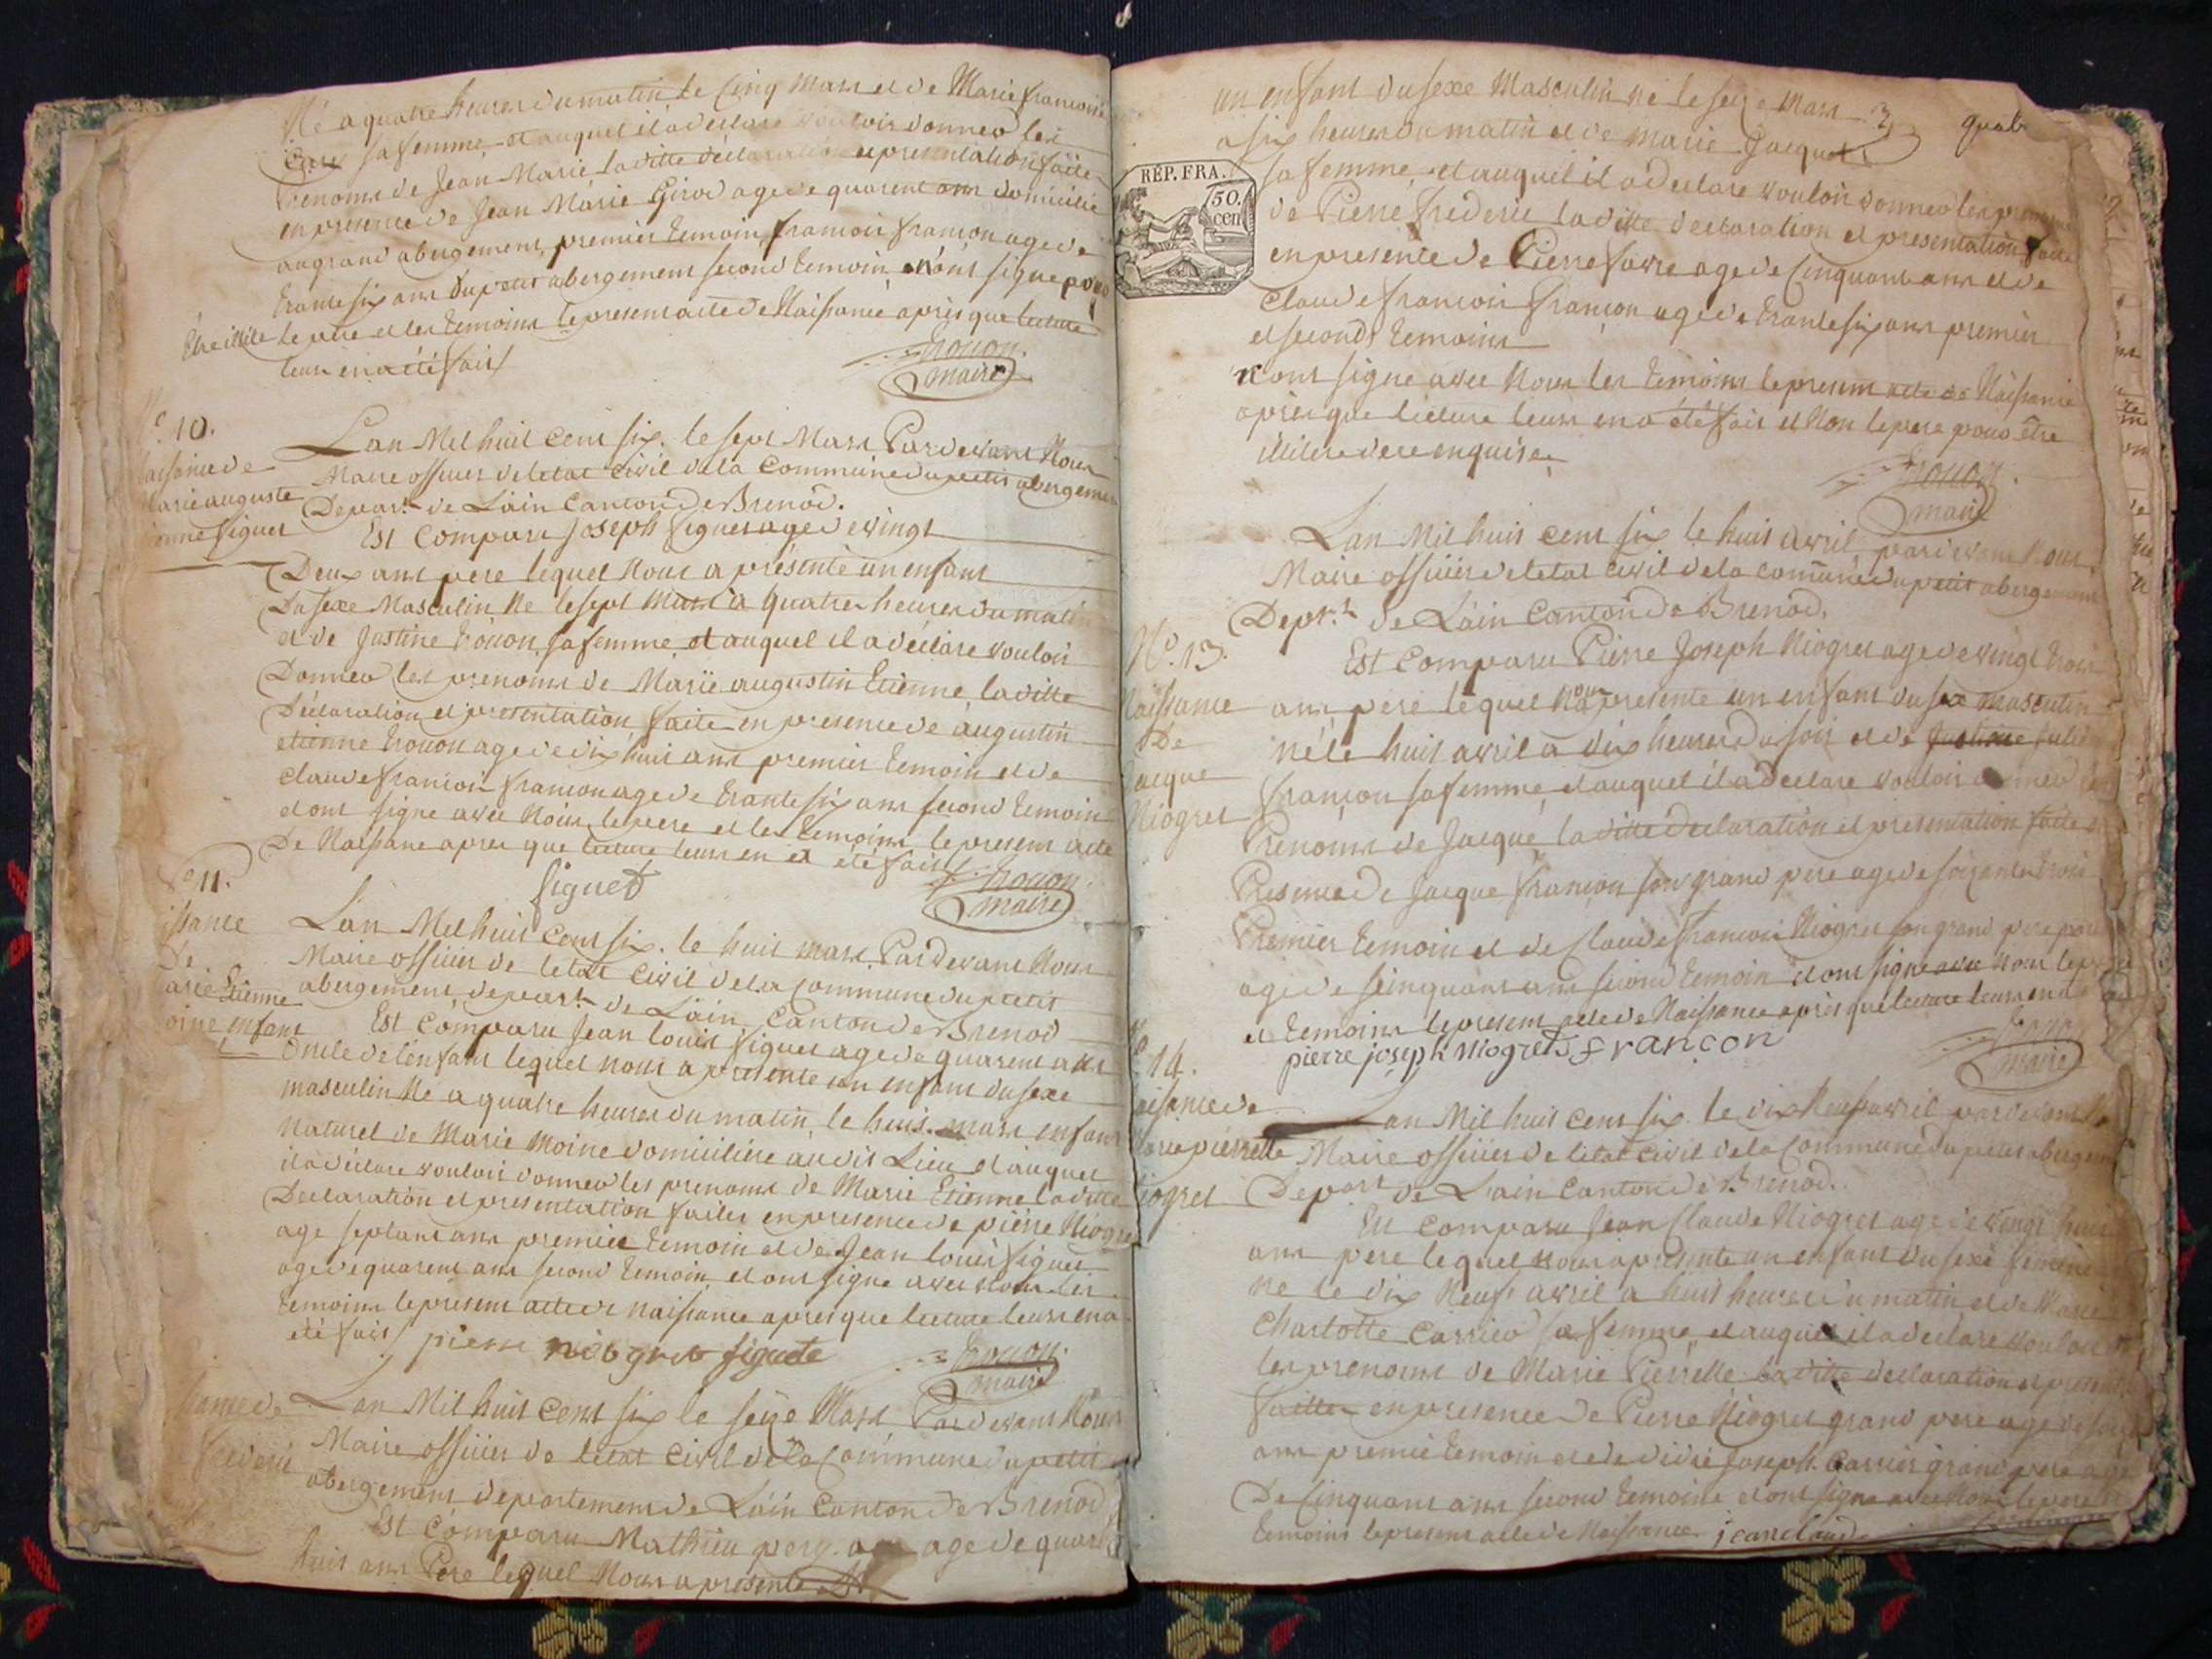 Né a quatre heures du matin le Cinq Mars et de Marie francoise
sa femme et auquel il a declare vouloir donner les
prenoms de Jean Marie la ditte declaration et presentation faite
en presence de Jean Marie Girod age de quarent ans domicilie
au grand abergement, premier temoin, francois francon age de
trante six ans du petit abergement second temoin et n'ont signe pour
être illile le pere et les temoins le present acte de Naissance après que lecture
leurs en a été fait
maire
N°. 10.
Naissance de
Marie auguste
Etienne figuet
Lan Mil huit cent six. le sept Mars, Pardevant Nous
Maire officier de letat civil de la Commune du petit abergement
Depart. de Lain Canton de Brenod.
Est Comparu Joseph figuet age de vingt
Deux ans pere lequel Nous a présenté un enfant
Du sexe Masculin Ne le sept Mars a quatre heures du matin
et de Justine sa femme, et auquel il a déclare vouloir
Donner les prenoms de Marie augustin Etienne, la ditte
Declaration et presentation faite en presence de augustin
etienne age de dix huit ans premier temoin et de
Claude francois francon age de trante six ans second temoin
et ont signe avec Nous le pere et les temoins le present acte
De Naissance apres que lecture leurs en a été fait
figuet
maire
N° 11.
De
Marie Etienne
moine enfant
Lan Mil huit cent six. le huit mars, Pardevant Nous
Maire officier de letat civil de la Commune du petit
abergement, depart. de Lain Canton de Brenod
Est Comparu Jean Louis figuet age de quarent ans
Oncle de l'enfant lequel nous a presente un enfant du sexe
masculin Né a quatre heures du matin, le huit mars enfant
Naturel de Marie Moine domiciliére au dit Lieu, et auquel
il a déclare vouloir donner les prenoms de Marie Etienne la ditte
Declaration et presentation faites en presence de piérre Niogret
age septant ans premier temoin et de Jean Louis figuet
age de quarent ans second temoin, et ont signe avec Nous les
temoins le present acte de naissance apres que lecture leurs en a
été fait
pierre niogret figuete
maire
Lan Mil huit cent six le seize Mars Pardevant Nous
Maire officier de letat Civil de la Commune du petit
abergement departement de Lain Canton de Brenod
Est Comparu Mathieu age de quarant
huit ans Pere lequel Nous a présente
un enfant du sexe Masculin né le seize Mars
3
a six heures du matin et de Marie Jacquet
RÉP. FRA.
50.
cen
sa femme, et auquel il a declare vouloir donner les prenoms
de Pierre frederic la ditte declaration et presentation faite
en presence de Pierre favre age de Cinquant ans et de
Claude francois francon age de trante six ans premier
et seconds temoins
N'ont signe avec Nous les temoins le present acte de Naissance
après que lecture leurs en a été fait et Non le pere pour être
illilere de ce enquise
maire
Lan Mil huit cent six le huit avril, pardevant Nous
Maire officier de letat civil de la commune du petit abergement
Dept.t de Lain Canton de Brenod.
N°. 13.
Naissance
De
Jacque
Niogret
Est Comparu Pierre Joseph Niogret age de vingt trois
ans pere lequel Nous a presente un enfant du sexe masculin
né le huit avril a dix heures du soir et de Justine
françon sa femme, et auquel il a declare vouloir donner les
Prenoms de Jacque la ditte declaration et presentation faite en
Presence de Jacque francon son grand pere age de soixante trois
Premier temoin et de Claude francois Niogret son grand pere
age de seinquant ans second temoin et ont signe avec Nous le pere
et temoins le present acte de Naissance après que lecture leurs en a
pierre joseph niogret francon
maire
14.
Naissance de
Marie pierrette
Niogret
Lan Mil huit cent six le dix Neuf avril pardevant
Maire officier de letat civil de la Commune du petit abergement
Depart de Lain Canton de Brenod.
Est comparu Jean Claude Niogret age de vingt huit
ans pere lequel nous a presente un enfant du sexe feminin
ne le dix Neuf avril a huit heures du matin et de Marie
Charlotte Carrier sa femme, et auquel il a declare vouloir
les prenoms de Marie Pierrette la ditte declaration et presentation
faitte en presence de Pierre Niogret grand pere age de
ans premier temoin et de Joseph Carrier grand pere age
De Cinquant ans second temoin et ont signe avec Nous le pere
temoins le present acte de Naissance. jean claude